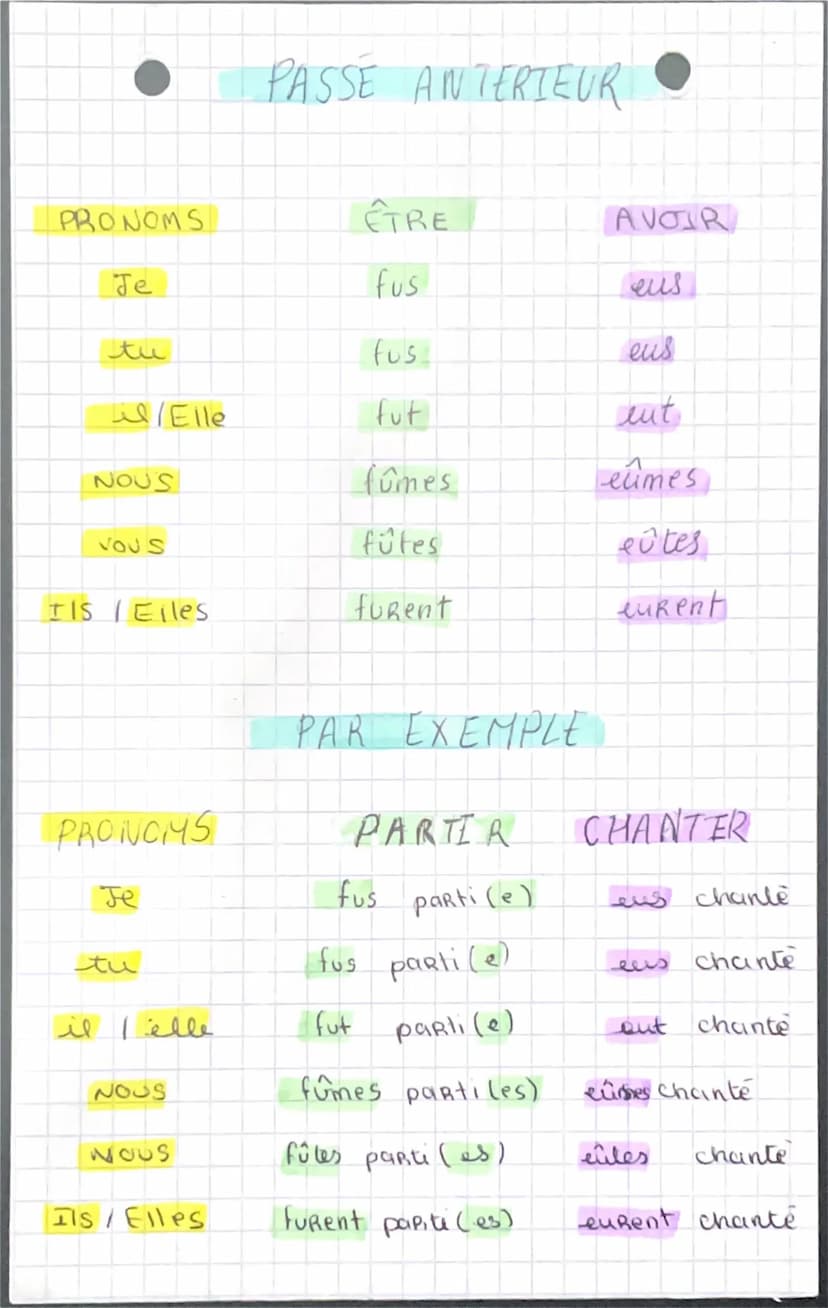 PASSÉ ANTERIEUR
PRONOMS ÊTRE AVOIR
Je fus eus
tu fus eus
il/Elle fut eut
NOUS fûmes eûmes
vous fûtes eûtes
Ils / Elles furent eurent
PAR EXEMPLE
PRONOMS PARTIR CHANTER
Je fus parti(e) eus chanté
tu fus parti(e) eus chanté
il / elle fut parti(e) eut chanté
NOUS fûmes parti(es) eûmes chanté
NOUS fûtes parti(es) eûtes chanté
Ils / Elles furent parti(es) eurent chanté